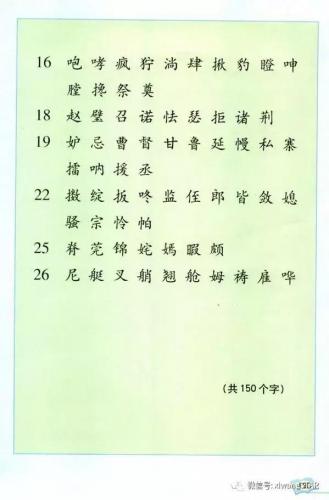 16 咆 哮 疯 狞 淌 肆 揪 豹 瞪 呻
膛 搀 祭 奠
18 赵 璧 召 诺 怯 瑟 拒 诸 荆
19 妒 忌 曹 督 甘 鲁 延 幔 私 寨
擂 呐 援 丞
22 擞 绽 扳 咚 监 侄 郎 皆 敛 媳
骚 宗 怜 帕
25 脊 莞 锦 姹 嫣 暇 颇
26 尼 艇 叉 艄 翘 舱 姆 祷 雇 哗
(共150个字)
微信号: